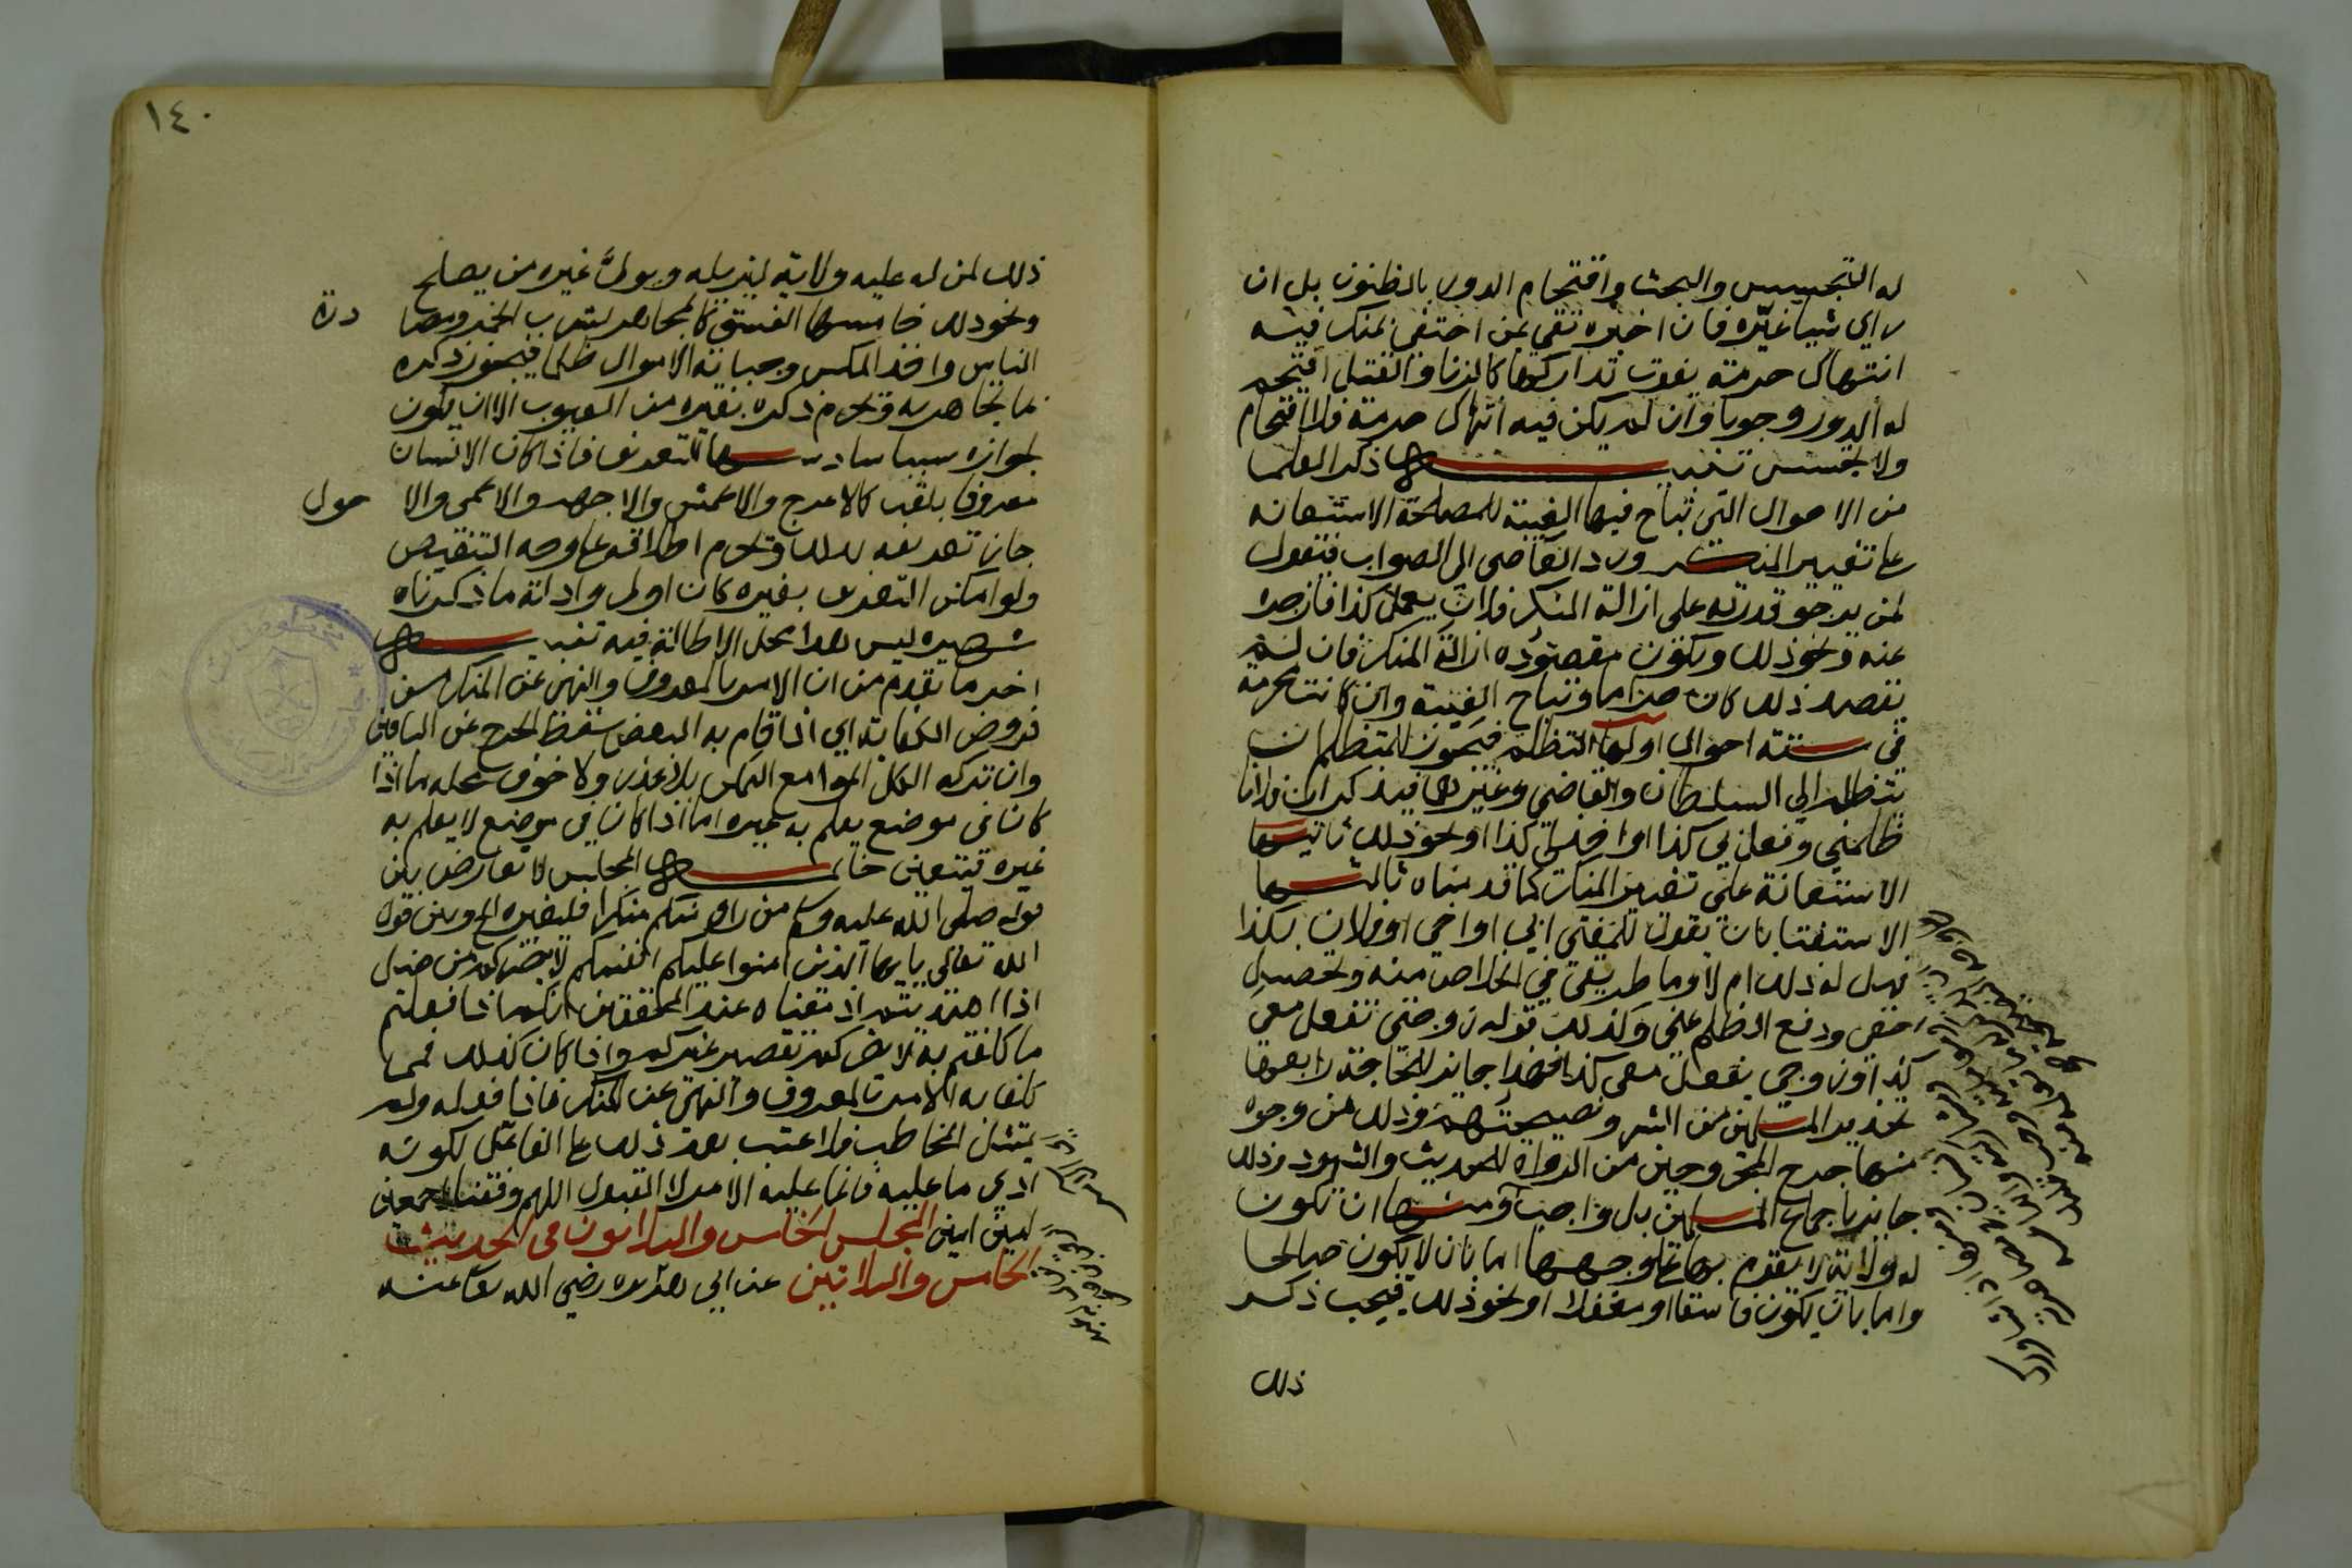 له التجسيس والبحث واقتحام الدور بالظنون بل ان
راي شيا غيره فان اخبره ثقة بمن اختفى بمنكر فيه
انتهاك حرمة يفوت تداركها كالزنا والقتل اقتحم
له الدور وجوبا وان لم يكن فيه انتهاك حرمة فلا اقتحام
ولا تجسس تنبيه ذكر العلما
من الاحوال التي تباح فيها الغيبة للمصلحة الاستعانه
على تغيير المنكر ورد القاضي الى الصواب فتقول
لمن يرجو قدرته على ازالة المنكر فلان يعمل كذا فازجره
عنه ونحو ذلك ويكون مقصوده ازالة المنكر فان لم
يقصد ذلك كان حراما وتباح الغيبة وان كانت محرمة
في ستة احوال اولها التظلم فيجوز للمتظلم ان
يتظلم الي السلطان والقاضي وغيرهما فيذكر ان فلانا
ظلمني وفعل بي كذا او اخذ لي كذا او نحو ذلك ثانيها
الاستعانة على تغيير المنكر كما قدمناه ثالثها
الاستفتا بان يقول للمفتي ابي او اخي او فلان بكذا
فهل له ذلك ام لا وما طريقي في الخلاص منه وتحصيل
حقي ودفع الظلم عني وكذلك قوله زوجتي تفعل معي
كذا او زوجي يفعل معي كذا فهذا جايز للحاجة رابعها
تحذير المسلمين من الشر ونصيحتهم وذلك من وجوه
منها جرح المجروحين من الرواة للحديث والشهود وذلك
جايز باجماع المسلمين بل واجب ومنها ان تكون
له ولاية لا يقوم بها على وجهها اما بان لا يكون صالحا
واما بان يكون فاسقا او مغفلا او نحو ذلك فيجب ذكر
ذلك
١٤٠
ذلك لمن له عليه ولاية ليزيله ويولي غيره من يصلح
ونحو ذلك خامسها الفسق كالمجاهر بشرب الخمر ومصا درة
الناس واخذ المكس وجباية الاموال ظلما فيجوز ذكره
بما يجاهر به ويحرم ذكره بغيره من العيوب الا ان يكون
لجوازه سببا سادسها التعريف فاذا كان الانسان
معروفا بلقب كالاعرج والاعمش والاجهر والاعمى والا حول
جاز تعريفه بذلك ويحرم اطلاقه على وجه التنقيص
ولو امكن التعريف بغيره كان اولى وادلة ما ذكرناه
شهيره ليس هذا محل الاطالة فيه تنبيه
اخر ما تقدم من ان الامر بالمعروف والنهي عن المنكر من
فروض الكفاية اي اذا قام به البعض سقط الحرج عن الباقين
وان تركه الكل اثموا مع التمكن بلا عذر ولا خوف محله ما اذا
كان في موضع يعلم به غيره اما اذا كان في موضع لا يعلم به
غيره فيتعين خاتمة المجلس لا تعارض بين
قوله صلى الله عليه وسلم من راى منكم منكرا فليغيره الخ وبين قوله
الله تعالى يا ايها الذين امنوا عليكم انفسكم لا يضركم من ضل
اذا اهتديتم اذ معناه عند المحققين انكم اذا فعلتم
ما كلفتم به لا يضركم تقصير غيركم واذا كان كذلك فمما
كلفنا به الامر بالمعروف والنهي عن المنكر فاذا فعله ولم
يمتثل المخاطب فلا عتب بعد ذلك على الفاعل لكونه
ادى ما عليه فانما عليه الامر لا القبول اللهم وفقنا اجمعين
امين امين المجلس الخامس والثلاثون في الحديث
الخامس والثلاثين عن ابي هريره رضي الله تعالى عنه